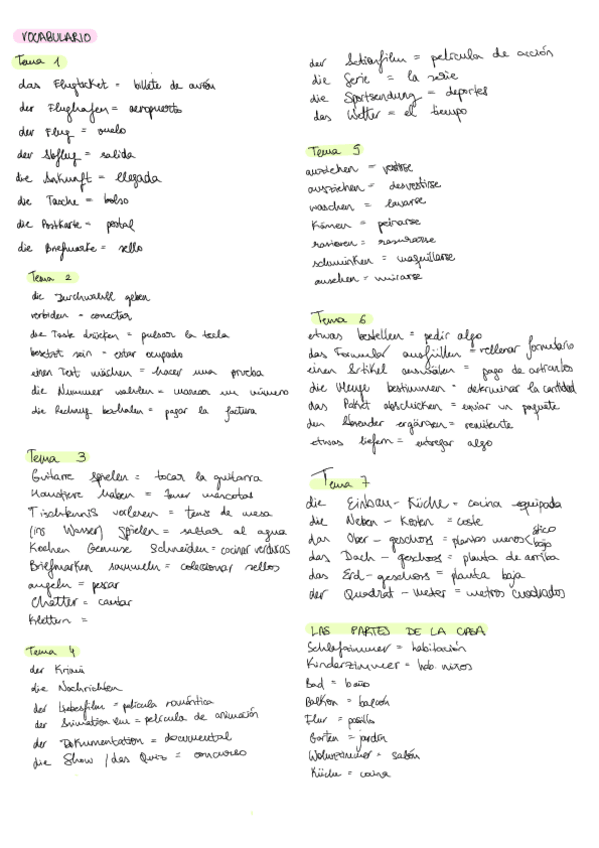 VOCABULARIO
Tema 1
das Flugticket = billete de avión
der Flughafen = aeropuerto
der Flug = vuelo
der Abflug = salida
die Ankunft = llegada
die Tasche = bolso
die Postkarte = postal
die Briefmarke = sello
Tema 2
die Durchwahl geben
verbiden = conectar
die Taste drücken = pulsar la tecla
besetzt sein = estar ocupado
einen Test machen = hacer una prueba
die Nummer wahlen = marcar un número
die Rechnug bezhalen = pagar la factura
Tema 3
Guitarre spielen = tocar la guitarra
Haustiere haben = tener mascotas
Tischtennis = tenis de mesa
(ins Wasser) = saltar al agua
Kochen Gemuse Schneiden = cocinar verduras
Briefmarken sammeln = colecionar sellos
angeln = pescar
=
Kletten =
Tema 4
der Krimi
die Nachrichten
der Liebesfilm = película romántica
der = película de animación
der Dokumentation = documental
die Show / das Quiz = concurso
der Actionfilm = película de acción
die Serie = la serie
die Sportsendung = deportes
das Wetter = el tiempo
Tema 5
= vestirse
ausziehen = desvestirse
waschen = lavarse
Kämen = peinarse
rasieren = rasurarse
schminken = maquillarse
ansehen = mirarse
Tema 6
etwas bestellen = pedir algo
das Formular ausfüllen = rellenar formulario
einen Artikel = pago de artículos
die Menge bestimmen = determinar la cantidad
das Paket abschicken = enviar un paquete
den Absender ergänzen = remitente
etwas liefern = entregar algo
Tema 7
die Einbau - Küche = cocina equipada
die Neben - Kosten = coste
das Ober - geschoss = plantas menos (bajo
ático
das Dach - geschoss = planta de arriba
das Erd - geschoss = planta baja
der Quadrat - meter = metros cuadrados
LAS PARTES DE LA CASA
Schlafzimmer = habitación
Kinderzimmer = hab. niños
Bad = baño
Balkon = balcón
Flur = pasillo
Garten = jardín
= salón
Küche = cocina